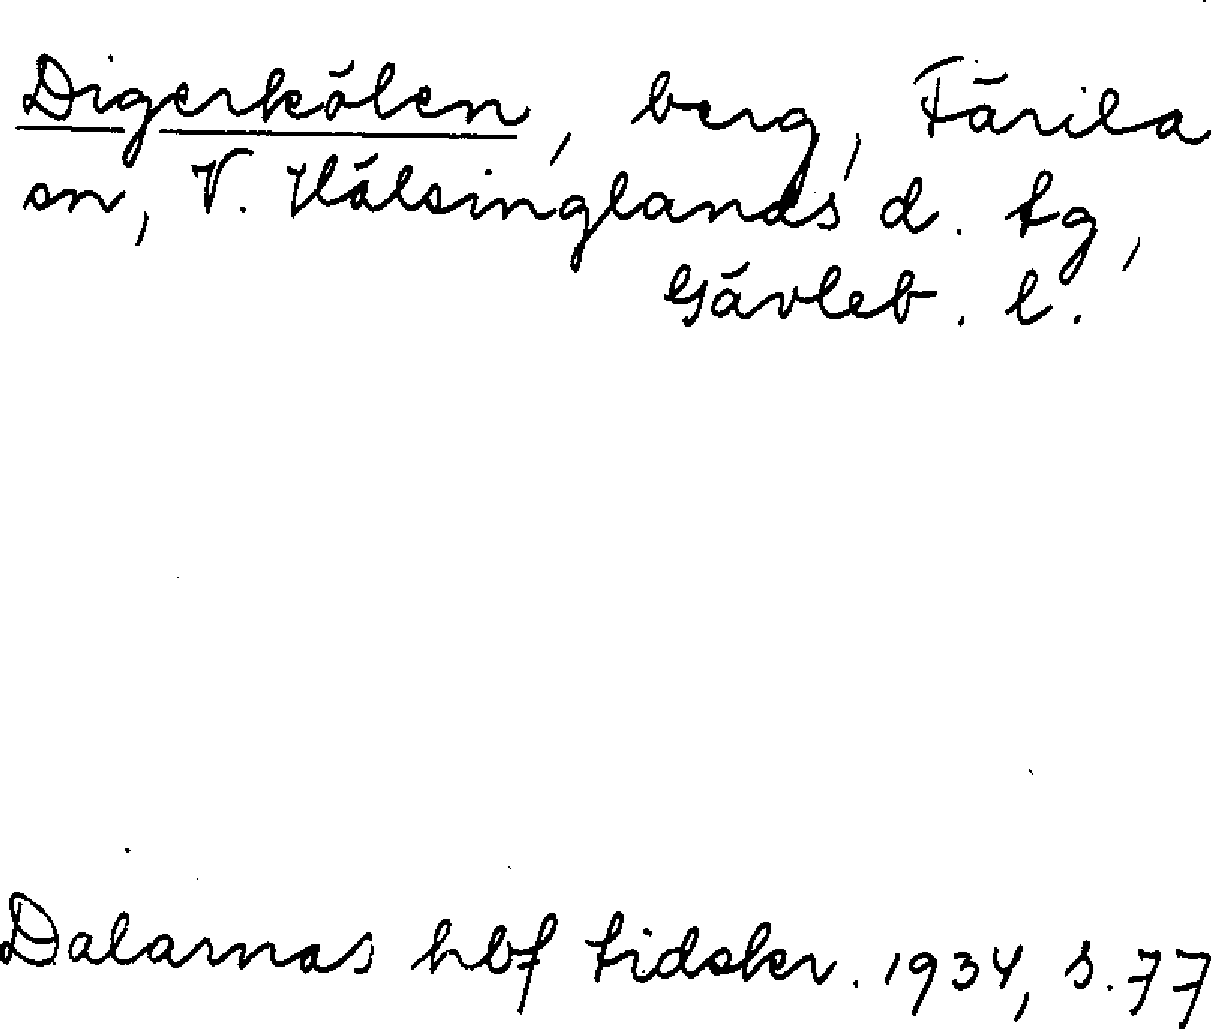 Digerkölen, berg, Färila
sn, V. Hälsinglands d. tg,
Gävleb. l.
Dalarnas hbf tidskr. 1934, s. 77